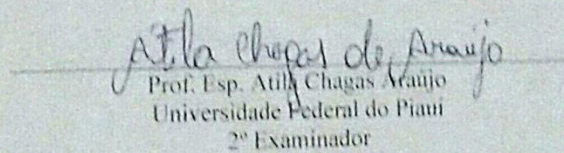 Atila Chagas de Araujo
Prof. Esp. Atila Chagas Araújo
Universidade Federal do Piauí
2º Examinador